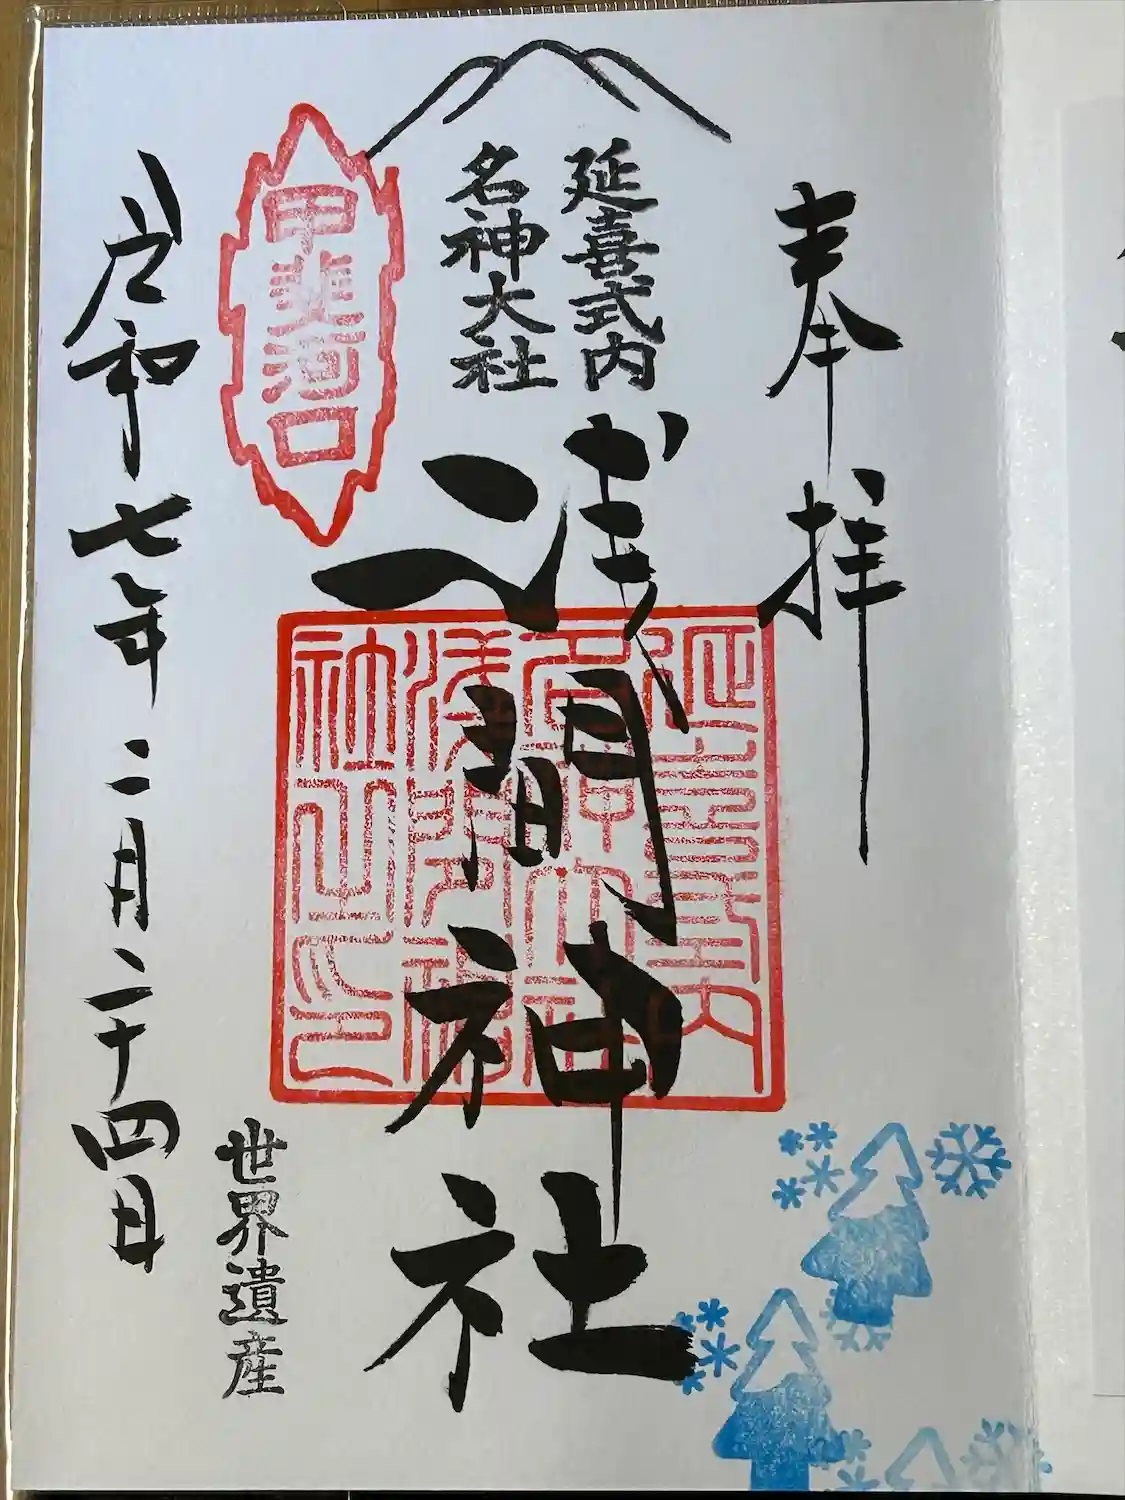 奉拝
延喜式内
名神大社
浅間神社
甲斐河口
延喜式内
名神大社
浅間神社之印
世界遺産
令和七年二月二十四日